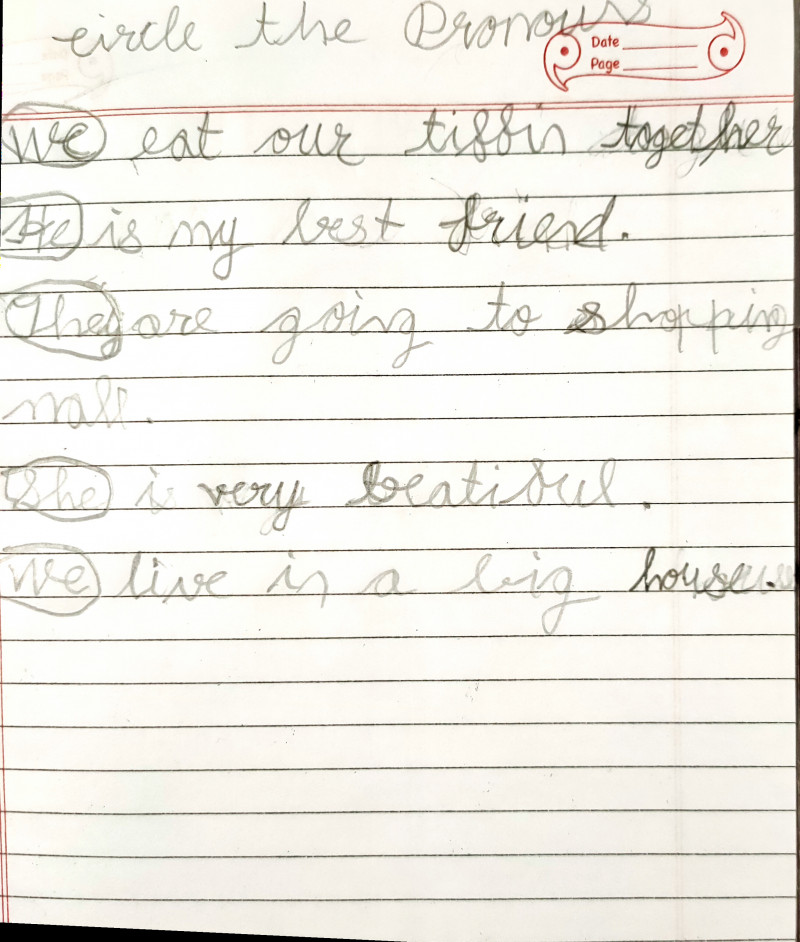 circle the Pronouns
Date
Page
We eat our tiffin together
He is my best friend.
They are going to shopping
mall.
She is very beatiful.
We live in a big house.